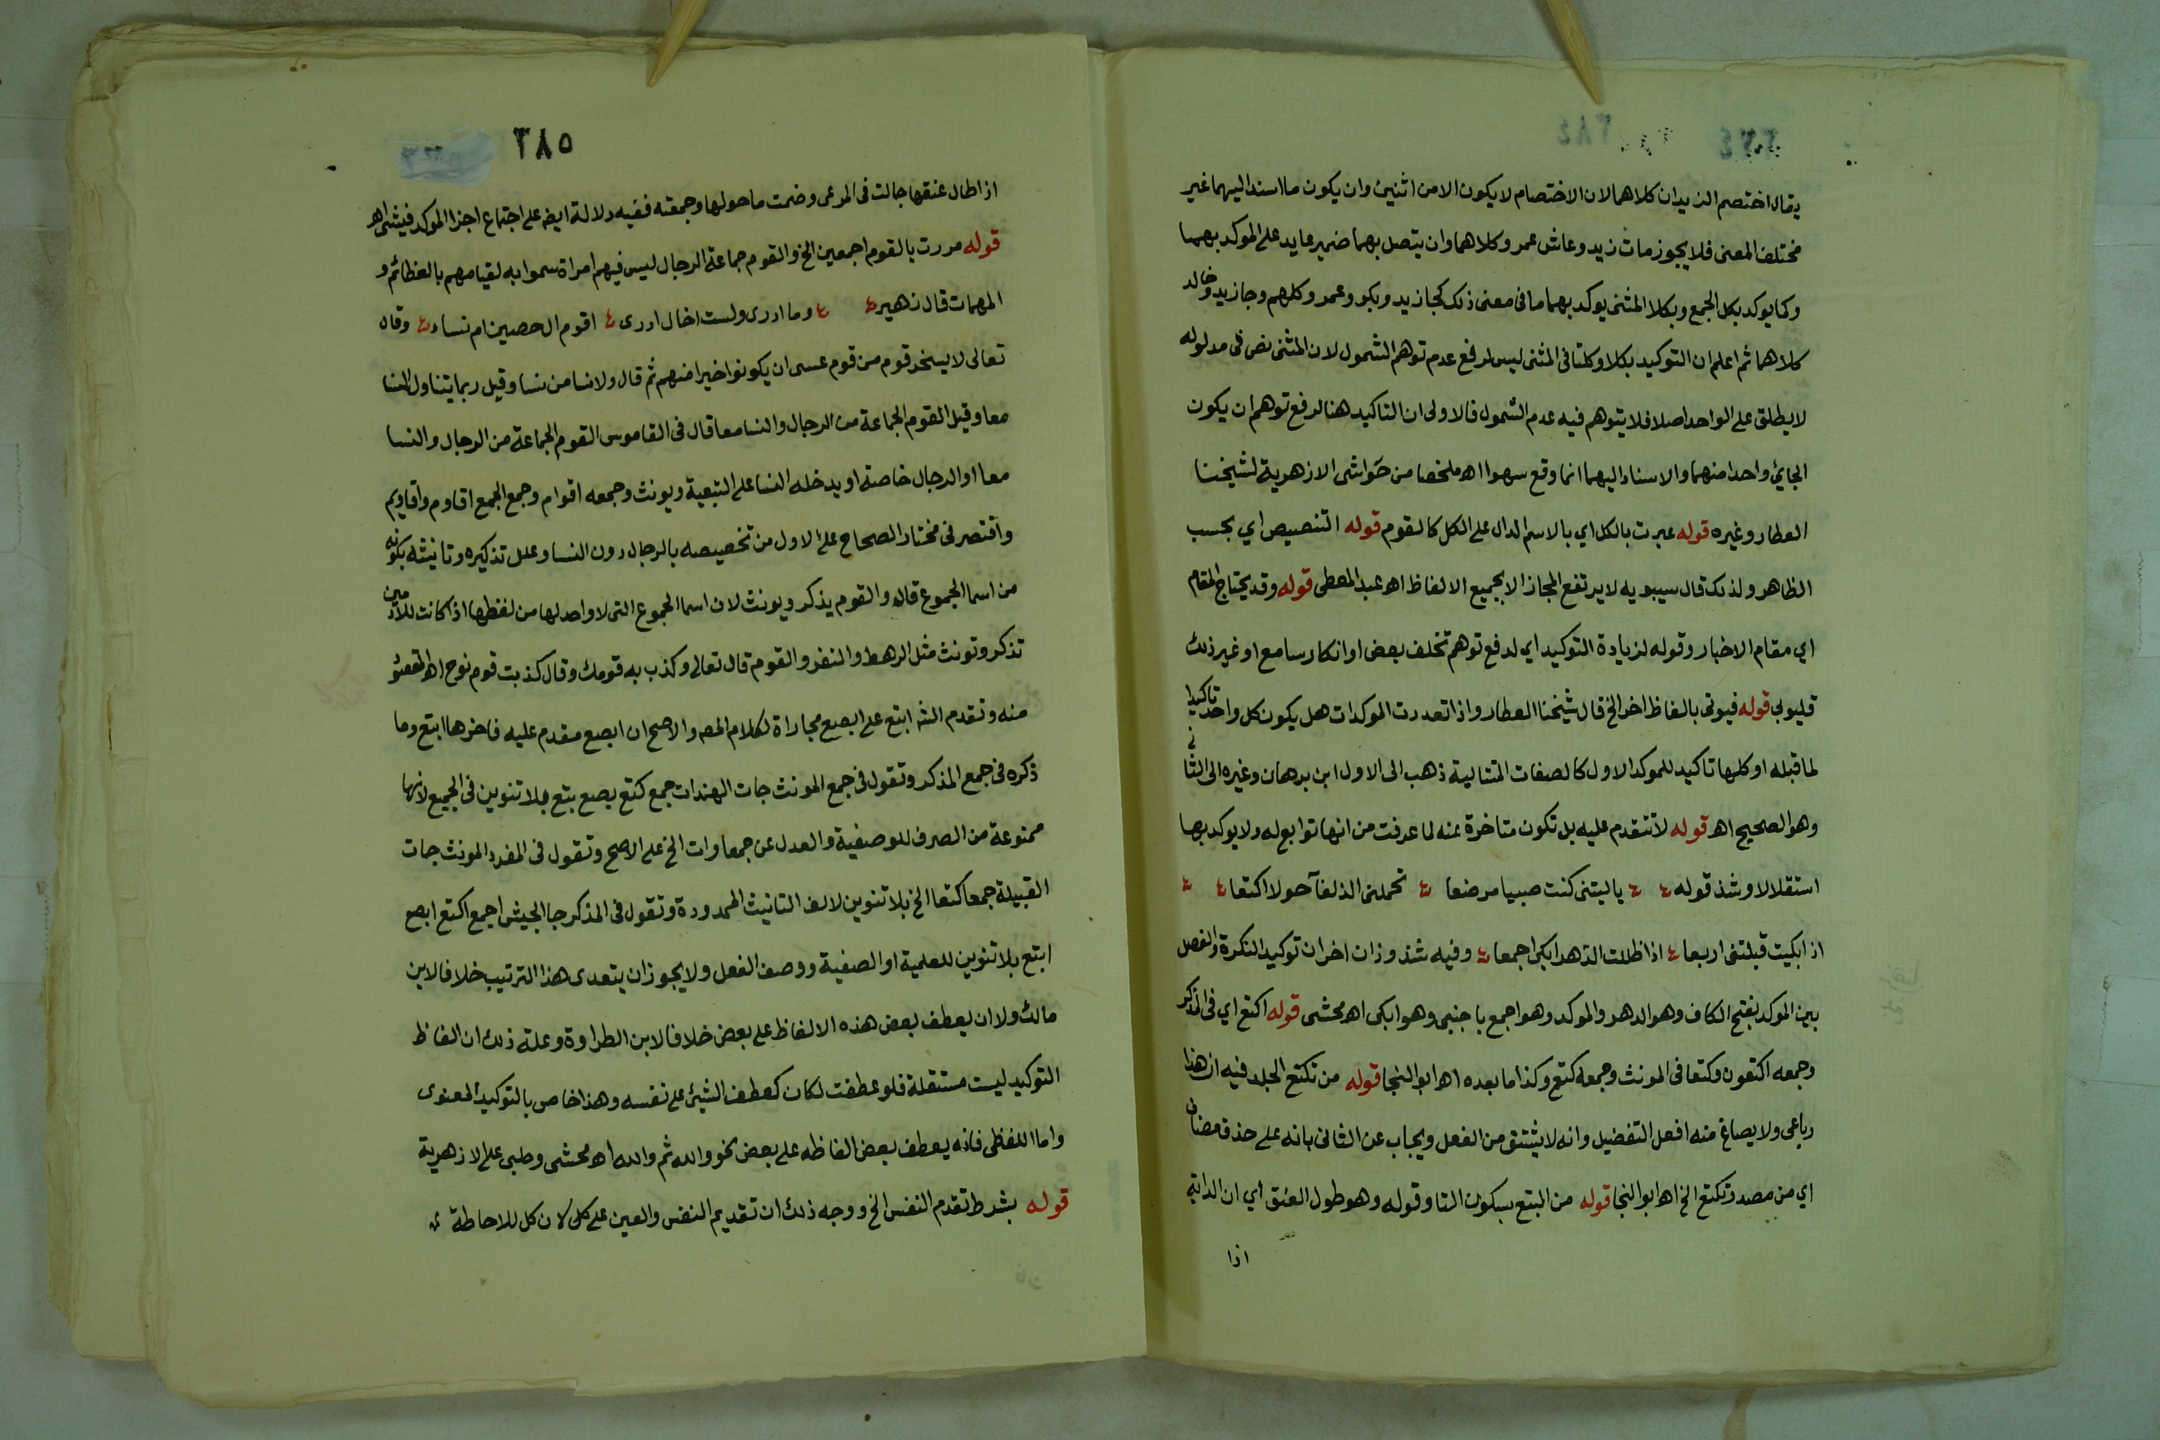 ٣٨٤
يقال اختصم الزيدان كلاهما لان الاختصام لا يكون الا من اثنين وان يكون ما اسند اليهما غير
مختلف المعنى فلا يجوز مات زيد وعاش عمرو كلاهما وان يتصل بهما ضمير عايد على الموكد بهما
وكما يوكد بكل الجمع وبكلا المثنى يوكد بهما ما في معنى ذلك كجا زيد وبكر وعمرو كلهم وجا زيد وخالد
كلاهما ثم اعلم ان التوكيد بكلا وكلتا في المثنى ليس لرفع عدم توهم الشمول لان المثنى نص في مدلوله
لا يطلق على الواحد اصلا فلا يتوهم فيه عدم الشمول فالاولى ان التاكيد هنا لرفع توهم ان يكون
الجايئ واحدا منهما والاسناد اليهما انما وقع سهوا اه ملخصا من حواشى الازهرية لشيخنا
العطار وغيره قوله عبرت بالكل اي بالاسم الدال على الكل كالقوم قوله التنصيص اي بحسب
الظاهر ولذلك قال سيبويه لا يرتفع المجاز الا بجميع الالفاظ اه عبد المعطى قوله وقد يحتاج المقام
اي مقام الاخبار وقوله لزيادة التوكيد اي لدفع توهم تخلف بعض او انكار سامع او غير ذلك
قليوبى قوله فيوتى بالفاظ اخر الخ قال شيخنا العطار واذا تعددت الموكدات هل يكون كل واحد تاكيدا
لما قبله او كلها تاكيد للموكد الاول كالصفات المتتالية ذهب الى الاول ابن برهان وغيره الى الثانى
وهو الصحيح اه قوله لا تتقدم عليه بل تكون متاخرة عنه لما عرفت من انها توابع له ولا يوكد بها
استقلالا وشذ قوله يا ليتنى كنت صبيا مرضعا تحملنى الذلفآ حولا اكتعا
اذا بكيت قبلتنى اربعا اذا ظللت الدهر ابكى اجمعا وفيه شذوذان اخران توكيد النكرة والفصل
بين الموكد بفتح الكاف وهو الدهر والموكد وهو اجمع باجنبى وهو ابكى اه محشى قوله اكتع اي فى المذكر
وجمعه اكتعون وكتعا فى المونث وجمعه كتع وكذا ما بعده اه ابو النجا قوله من تكتع الجلد فيه ان هذا
رباعى ولا يصاغ منه افعل التفضيل وانه لا يشتق من الفعل ويجاب عن الثانى بانه على حذف مضاف
اي من مصدر تكتع الخ اه ابو النجا قوله من البتع بسكون التا وقوله وهو طول العنق اي ان الدابة
اذا
٣٨٥
اذا طال عنقها جالت فى المرعى وضمت ما حولها وجمعته ففيه دلالة ايضه على اجتماع اجزا الموكد فيشى اه
قوله مررت بالقوم اجمعين الخ والقوم جماعة الرجال ليس فيهم امراة سموا به لقيامهم بالعظائم و
المهمات قال زهير وما ادرى ولست اخال ادرى اقوم ال حصين ام نساء وقال
تعالى لا يسخر قوم من قوم عسى ان يكونوا خيرا منهم ثم قال ولا نسا من نسا وقيل ربما يتناول النسا
معا وقيل القوم الجماعة من الرجال والنسا معا قال فى القاموس القوم الجماعة من الرجال والنسا
معا او الرجال خاصة او يدخله النسا على التبعية ويونث وجمعه اقوام وجمع الجمع اقاوم واقاويم
واقتصر فى مختار الصحاح على الاول من تخصيصه بالرجال دون النسا وعلل تذكيره وتانيثه بكونه
من اسما الجموع قال والقوم يذكر ويونث لان اسما الجموع التى لا واحد لها من لفظها اذا كانت للادميين
تذكر وتونث مثل الرهط والنفر والقوم قال تعالى وكذب به قومك وقال كذبت قوم نوح اه
منه وتقدم الشه ابتع على ابصع مجاراة لكلام المصه والاصح ان ابصع مقدم عليه فاخرها ابتع وما
ذكره فى جمع المذكر وتقول فى جمع المونث جات الهندات جمع كتع بصع بتع بلا تنوين فى الجميع لانها
ممنوعة من الصرف للوصفية والعدل عن جمعاوات الخ على الاصح وتقول فى المفرد المونث جات
القبيلة جمعا كتعا الخ بلا تنوين لالف التانيث الممدودة وتقول فى المذكر جا الجيش اجمع اكتع ابصع
ابتع بلا تنوين للعلمية او الصفية ووصف الفعل ولا يجوز ان يتعدى هذا الترتيب خلافا لابن
مالك ولا ان يعطف بعض هذه الالفاظ على بعض خلافا لابن الطراوة وعلة ذلك ان الفاظ
التوكيد ليست مستقلة فلو عطفت لكان كعطف الشيئ على نفسه وهذا خاص بالتوكيد المعنوى
واما اللفظى فانه يعطف بعض الفاظه على بعض نحو والله ثم والله اه محشى وحلبى على الازهرية
قوله بشرط تقدم النفس الخ ووجه ذلك ان تقديم النفس والعين على كل لان كل للاحاطة